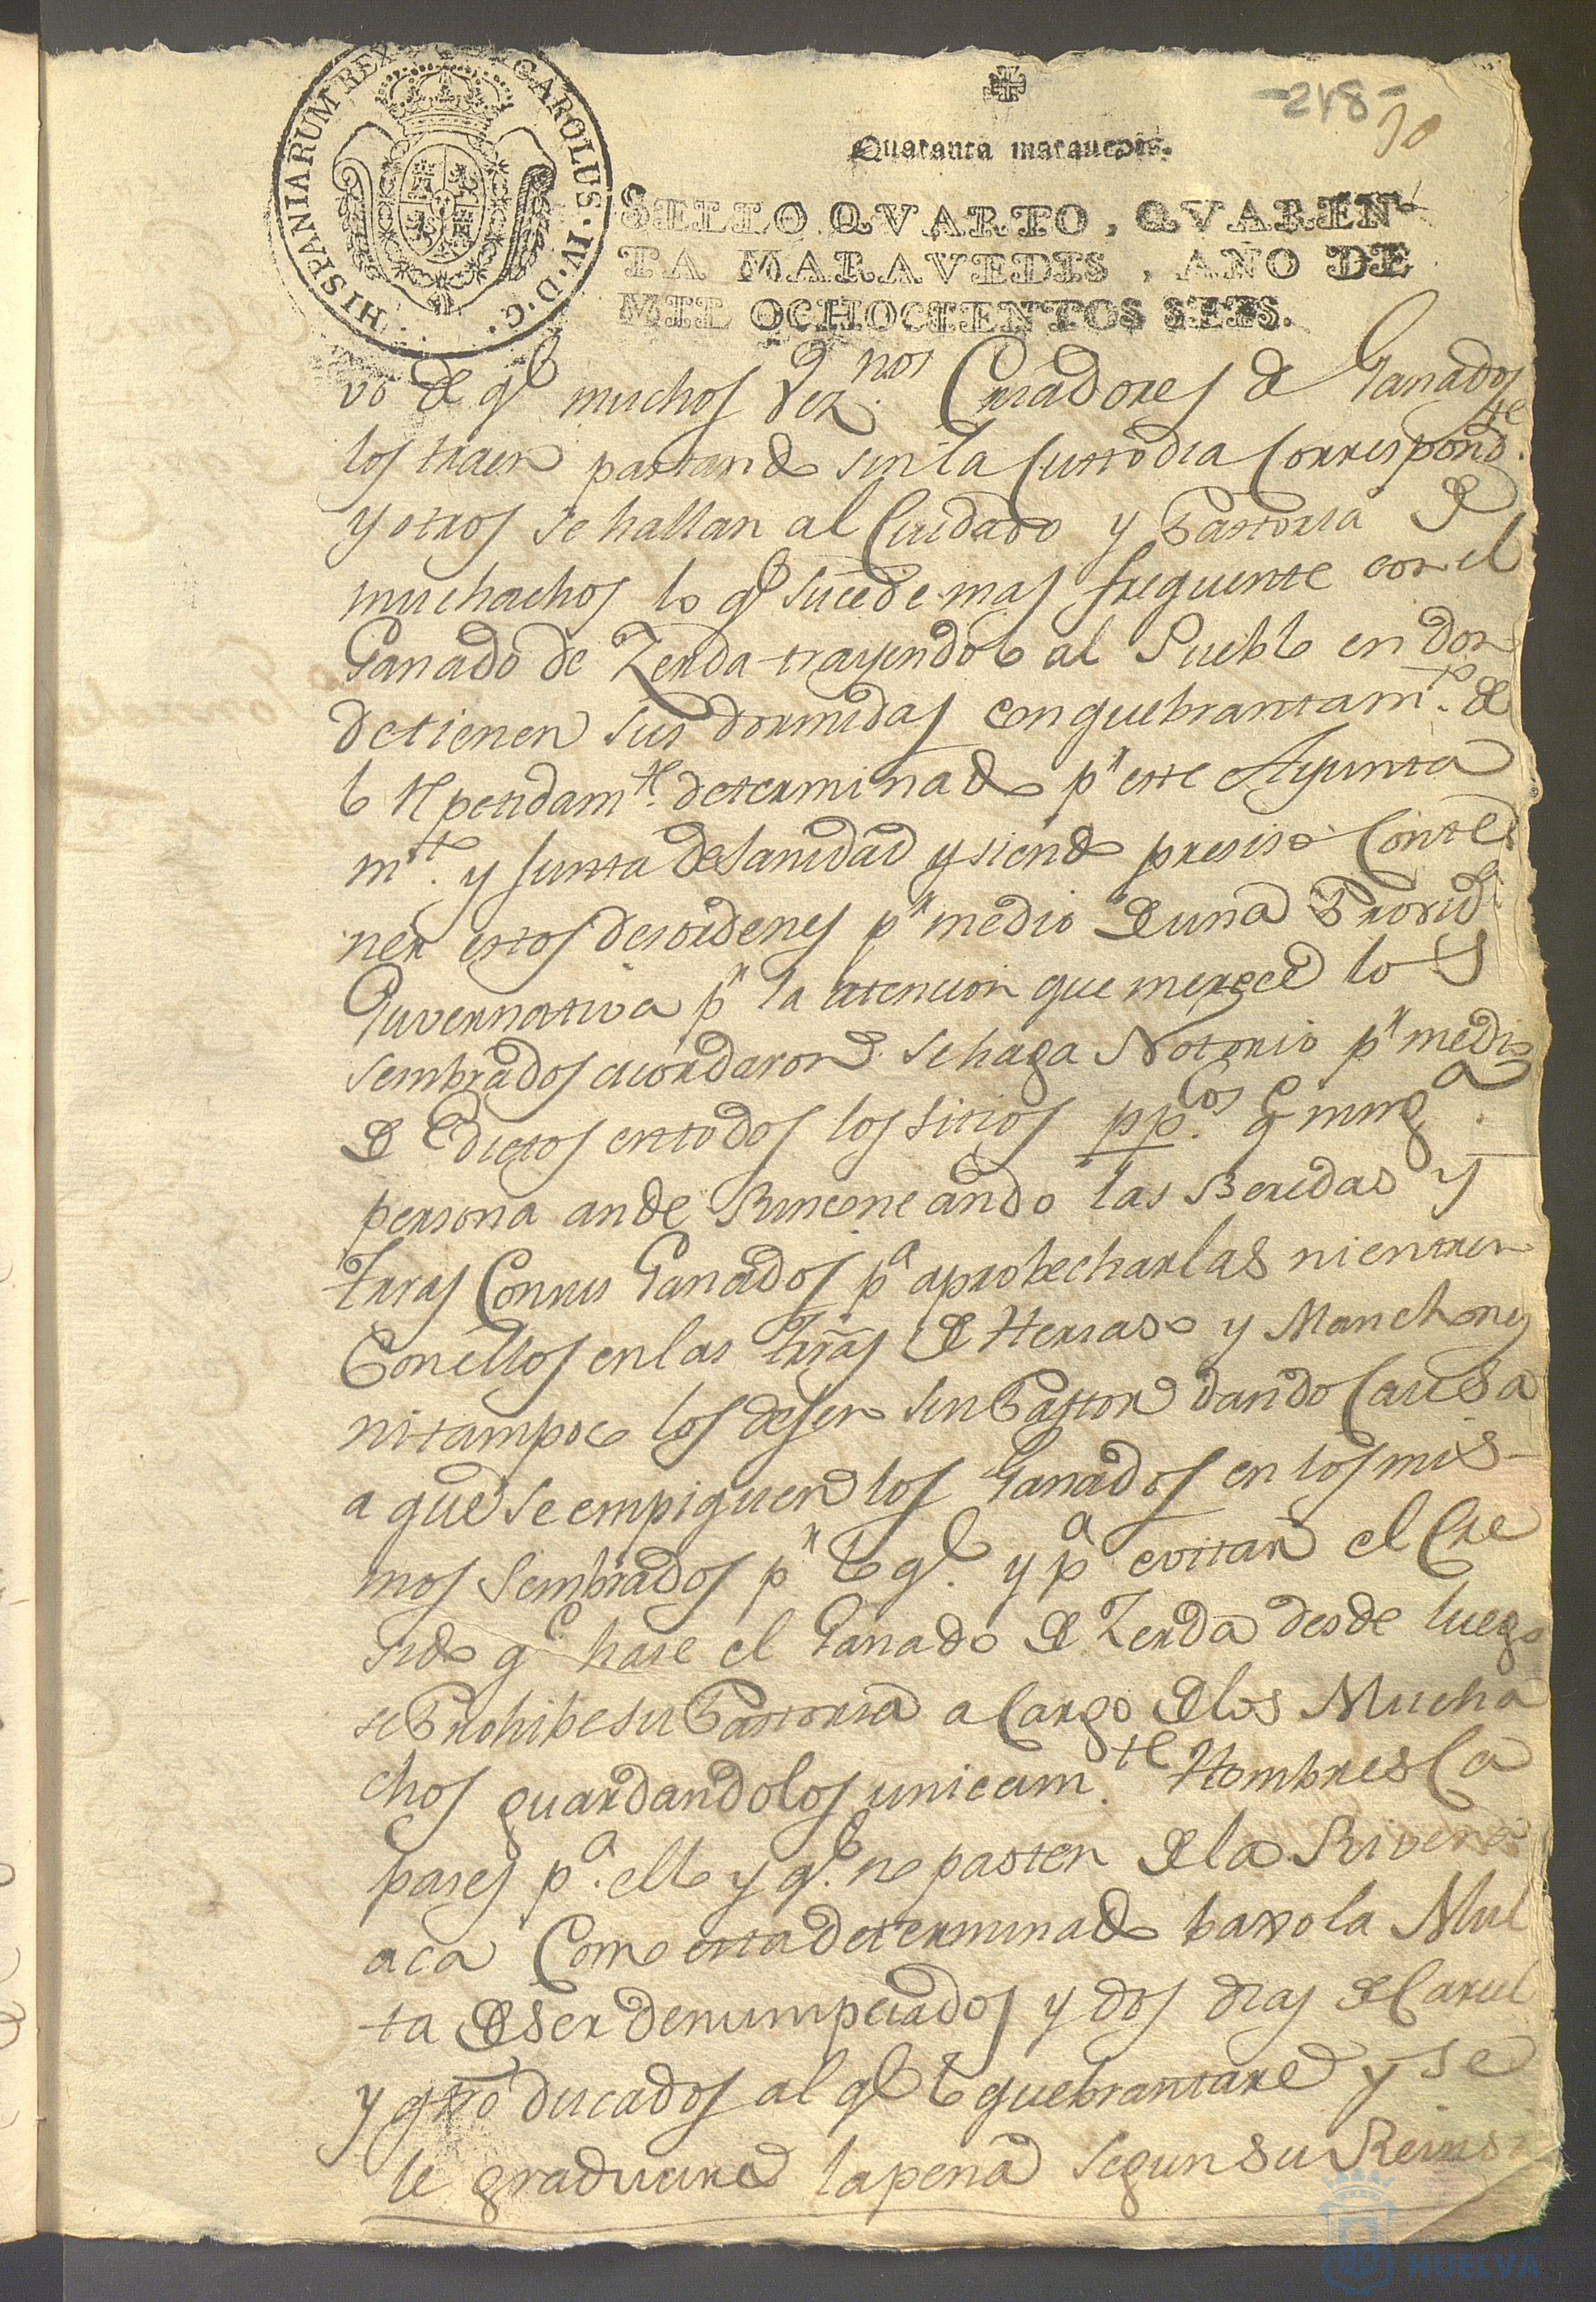 HISPANIARUM REX CAROLUS · IV · D · G ·
-248-
90
Quarenta marauedis.
SELLO QVARTO, QVAREN-
TA MARAVEDIS, AÑO DE
MIL OCHOCIENTOS SEIS.
vo de qe muchos veznos Criadores de Ganados
los traen pastando sin la Custodia Correspondte
y otros se hallan al Cuidado y Pastoria de
muchachos lo qe sucede mas frequente con el
Ganado de Zerda trayendolo al Pueblo en don
de tienen sus dormidas con quebrantamto de
lo repetidamte determinado pr este Ayunta
mto y Junta de Sanidad y siendo presiso Conte
ner estos desordenes pr medio de una Provida
Guvernativa pr la atencion que merece los
sembrados acordaron se haga Notorio pr medio
de Edictos en todos los sitios ppcos qe ninga
persona ande Rinconeando las Beredas y
trras Con sus Ganados pa aprobecharlas ni entren
Con ellos en las trras de Herraso y Manchones
ni tampoco los desen sin Pastor dando Causa
a que se empiquen los Ganados en los mis-
mos sembrados pr lo qe y pa evitar el Cre
sido qe hase el Ganado de Zerda desde luego
se Prohibe su Pastoria a Cargo de los Mucha
chos guardandolos unicamte Hombres Ca
pases pa ello y qe no pasten de la Rivera
aca Como esta determinado baxo la Mul
ta de ser denumpciados y dos dias de Carcel
y qtro ducados al qe lo quebrantare y se
le graduare la pena segun su Reinsi
HUELVA